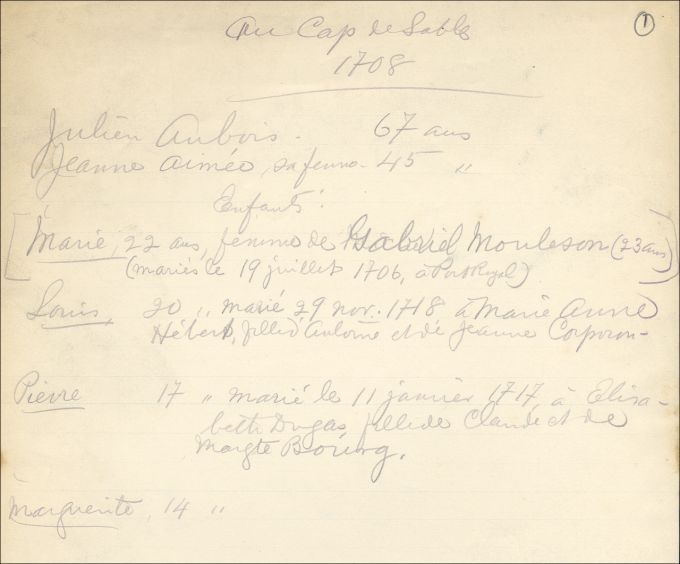 1
Au Cap de Sable
1708
Julien Aubois. 67 ans
Jeanne Aimée, sa femme 45 "
Enfants:
[Marie, 22 ans, femme de Gabriel Mouleson (23 ans)]
(mariés le 19 juillet 1706, à Port Royal)
Louis, 20 " marié 29 nov. 1718 à Marie Anne
Hébert, fille d'Antoine et de Jeanne Corporon-
Pierre 17 " marié le 11 janvier 1717, à Elisa-
beth Dugas, fille de Claude et de
Margte Bourg.
Marguerite, 14 "